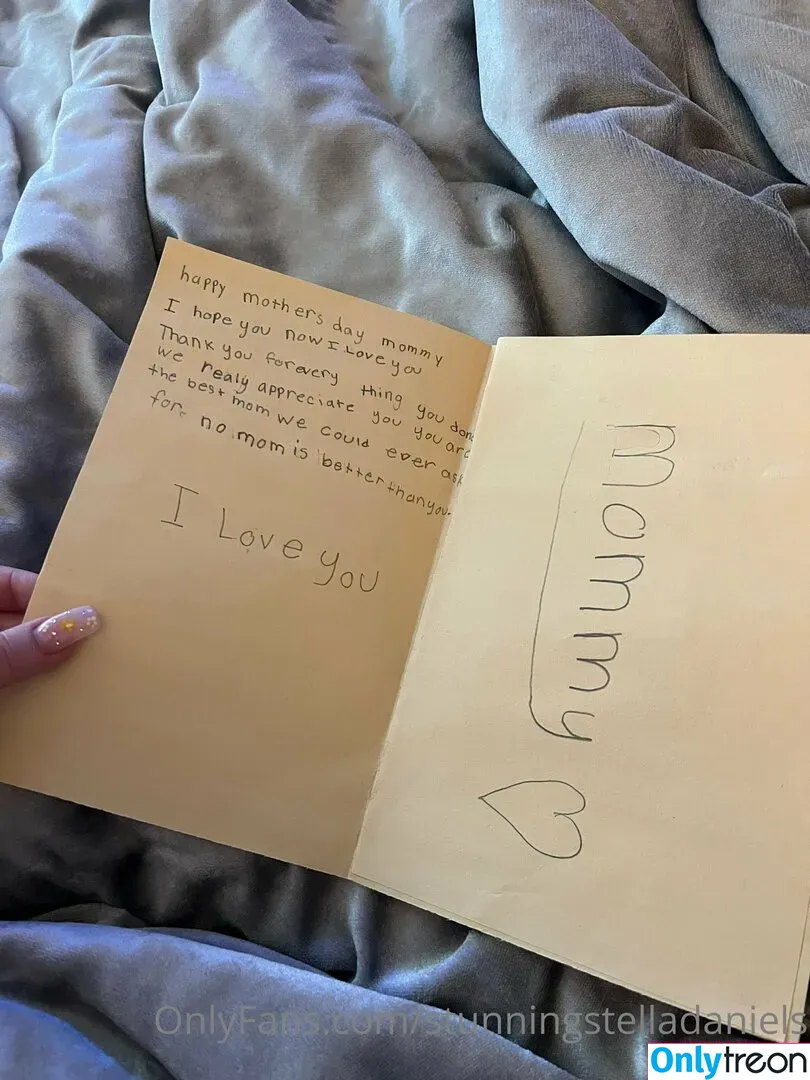 happy mothers day mommy
I hope you now I Love you
Thank you forevery thing you done
we realy appreciate you you are
the best mom we could ever ask
for. no mom is better than you.
I Love you
mommy
OnlyFans.com/stunningstelladaniels
Onlytreon